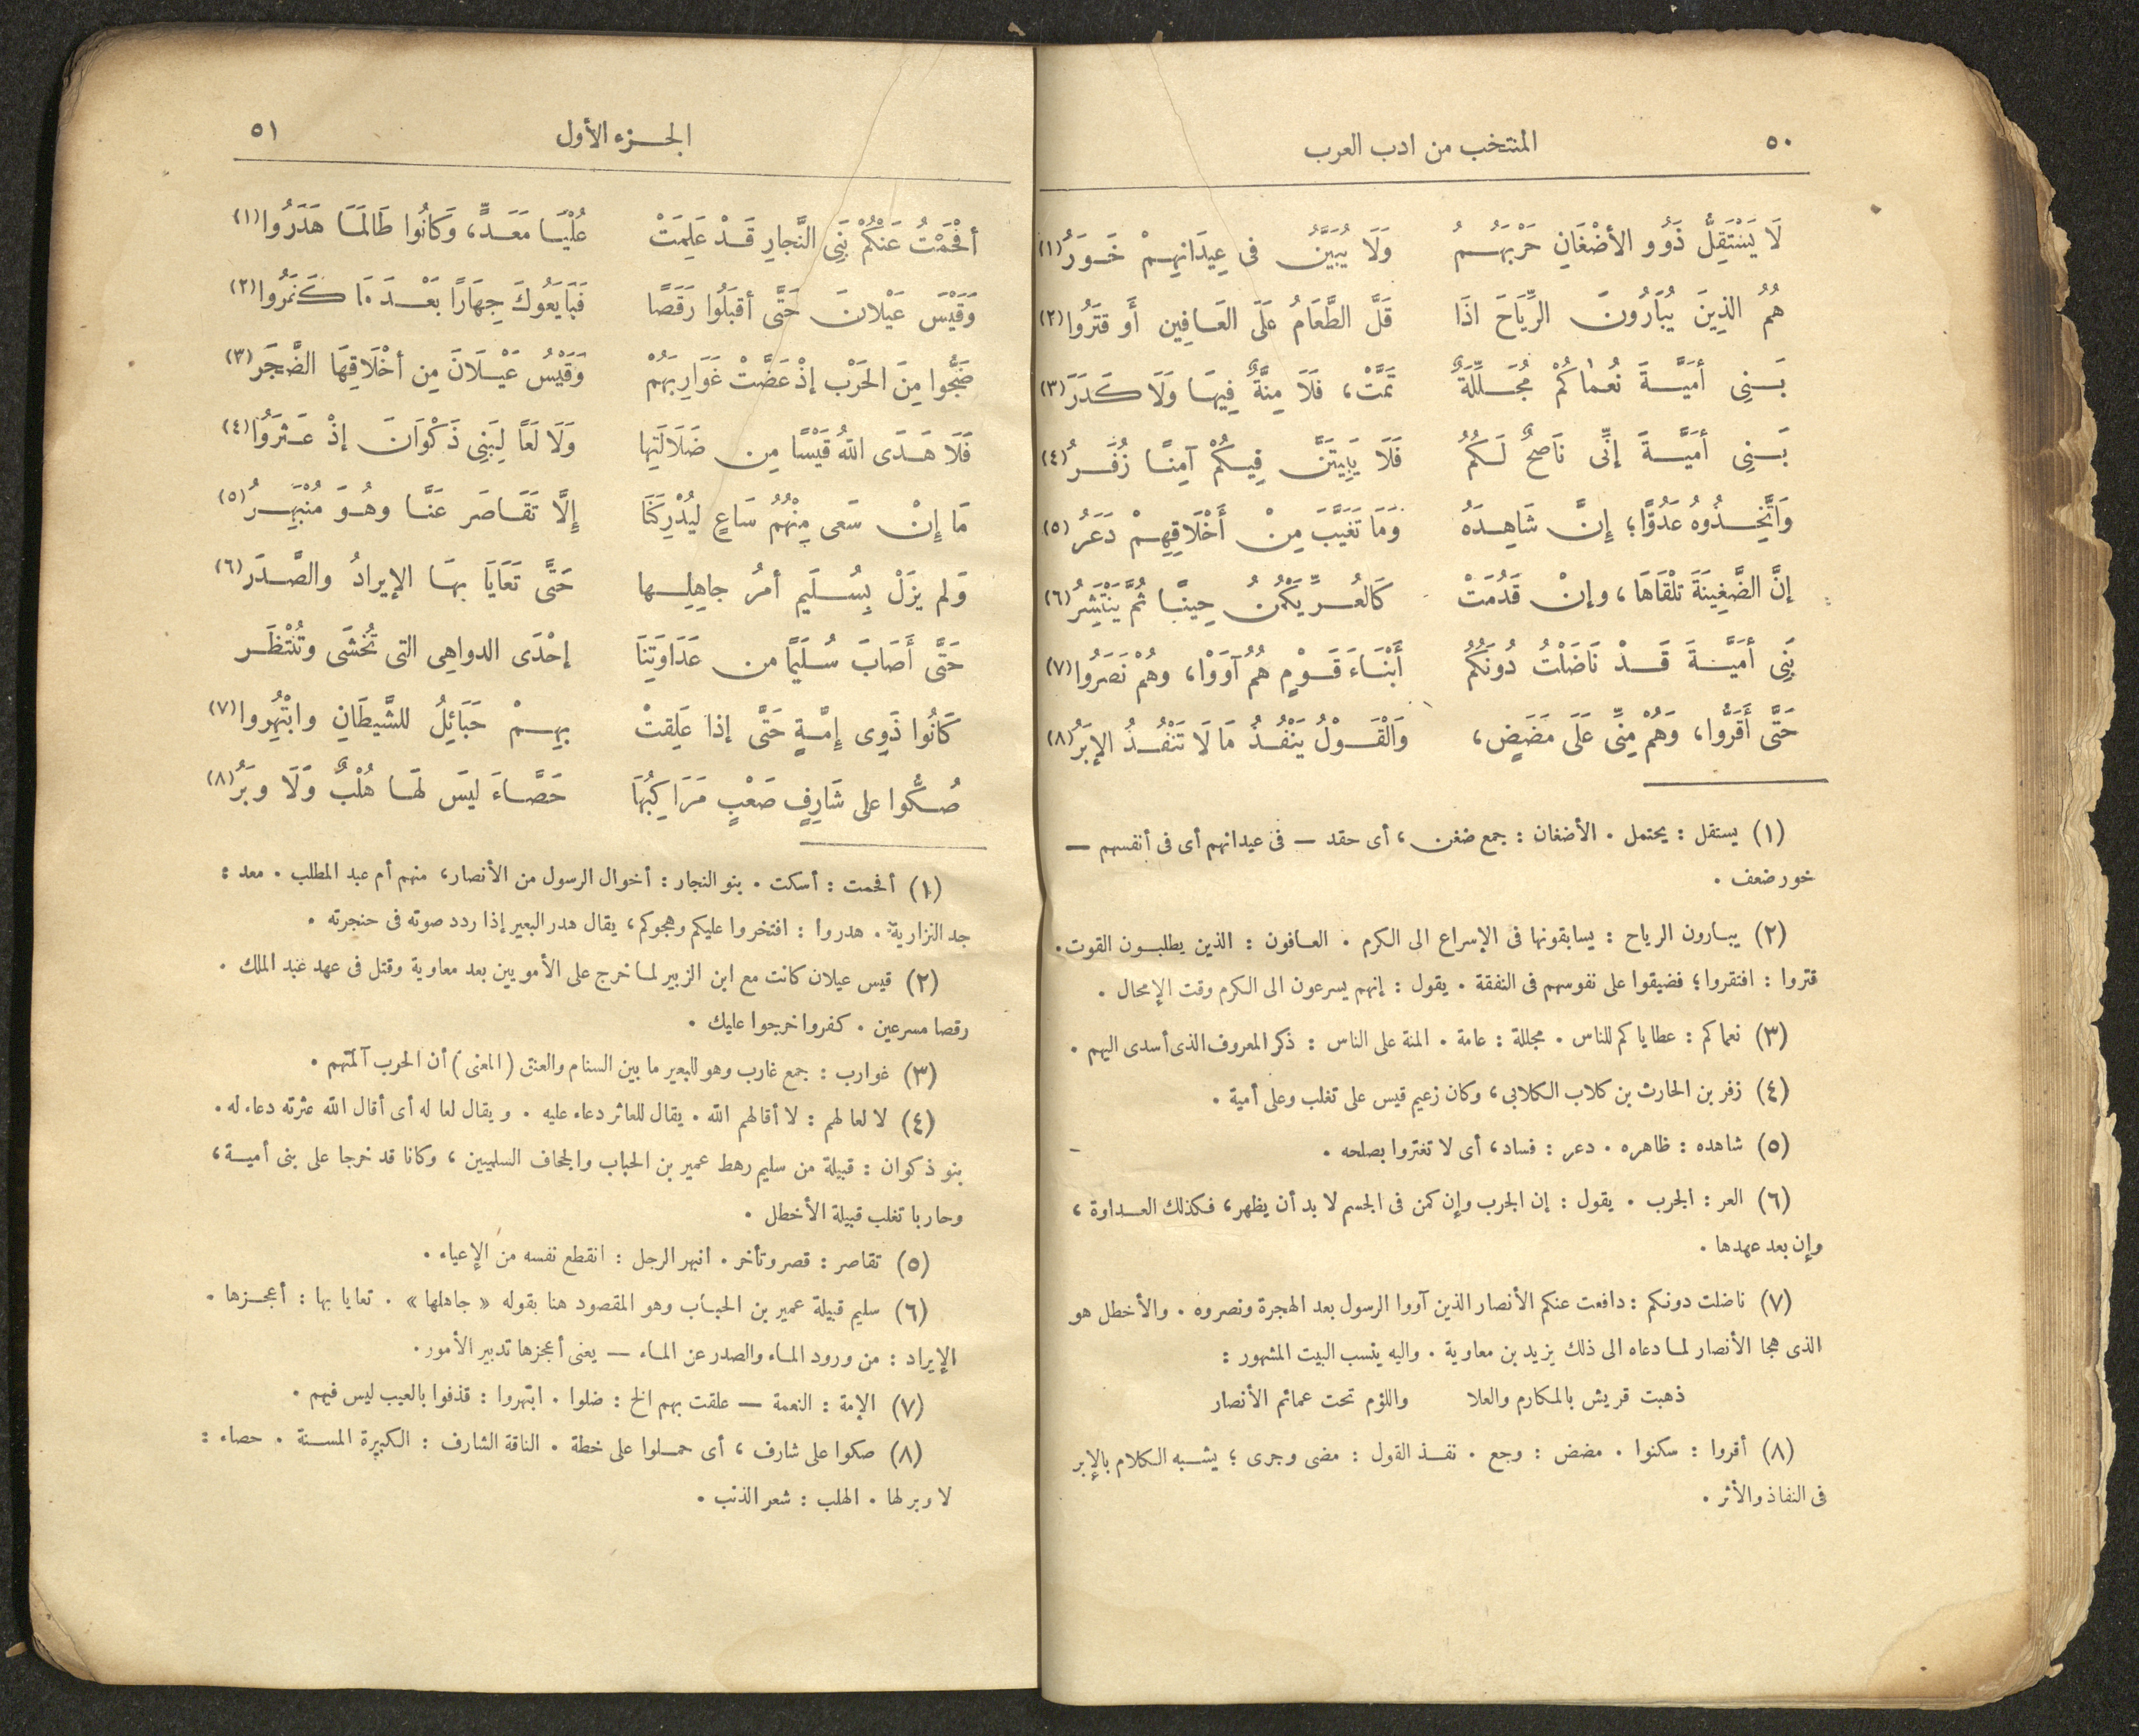 ٥٠ المنتخب من ادب العرب
لَا يَسْتَقِلُّ ذَوُو الأضْغَانِ حَرْبَهُمُ وَلَا يُبَيَّنُ فى عِيدَانِهِمْ خَوَرُ (١)
هُمُ الذِينَ يُبَارُونَ الرِّيَاحَ اذَا قَلَّ الطَّعَامُ عَلَى العَافِين أَو قَتَرُوا (٢)
بَنِى أمَيَّةَ نُعمَاكُمْ مُجَلِّلَةٌ تَمَّتْ، فَلَا مِنَّةٌ فِيهَا وَلَا كَدَرَ (٣)
بَنِى أمَيَّةَ إنِّى نَاصحٌ لَكُمُ فَلَا يَبِيتَنَّ فِيكُمْ آمِنًا زُفَرُ (٤)
وَاتَّخِذُوهُ عَدُوًّا؛ إِنَّ شَاهِدَهُ وَمَا تَغَيَّبَ مِنْ أَخْلَاقِهِمْ دَعَرُ (٥)
إنَّ الضَّغِينَةَ تلْقَاهَا، وإنْ قَدُمَتْ كَالعُرِّ يَكْمُنُ حِينًا ثُمَّ يَنْتَشِرُ (٦)
بَنِى أمَيَّةَ قَدْ نَاضَلْتُ دُونَكُمُ أَبْنَاءَ قَوْمٍ هُمُ آوَوْا، وهُمْ نَصَرُوا (٧)
حَتَّى أَقَرُّوا، وَهُمْ مِنِّى عَلَى مَضَضٍ، وَالْقَوْلُ يَنْفُذُ مَا لَا تَنْفُذُ الإبَرُ (٨)
(١) يستقل : يحتمل . الأضغان : جمع ضغن، أى حقد — فى عيدانهم أى فى أنفسهم —
خور ضعف .
(٢) يبارون الرياح : يسابقونها فى الإسراع الى الكرم . العافون : الذين يطلبون القوت.
قتروا : افتقروا؛ فضيقوا على نفوسهم فى النفقة . يقول : إنهم يسرعون الى الكرم وقت الإمحال .
(٣) نعماكم : عطاياكم للناس . مجللة : عامة . المنة على الناس : ذكر المعروف الذى أسدى اليهم .
(٤) زفر بن الحارث بن كلاب الكلابى، وكان زعيم قيس على تغلب وعلى أمية .
(٥) شاهده : ظاهره . دعر : فساد، أى لا تغتروا بصلحه .
(٦) العر : الجرب . يقول : إن الجرب وإن كمن فى الجسم لا بد أن يظهر، فكذلك العداوة ،
وإن بعد عهدها .
(٧) ناضلت دونكم : دافعت عنكم الأنصار الذين آووا الرسول بعد الهجرة ونصروه . والأخطل هو
الذى هجا الأنصار لما دعاه الى ذلك يزيد بن معاوية . واليه ينسب البيت المشهور :
ذهبت قريش بالمكارم والعلا واللؤم تحت عمائم الأنصار
(٨) أقروا : سكنوا . مضض : وجع . نفذ القول : مضى وجرى ؛ يشبه الكلام بالإبر
فى النفاذ والأثر .
الجزء الأول ٥١
أفْحَمْتُ عَنْكُمْ بَنِى النَّجارِ قَدْ عَلِمَتْ عُلْيَا مَعَدٍّ، وَكَانُوا طَالَمَا هَدَرُوا (١)
وَقَيْسَ عَيْلانَ حَتَّى أقبَلُوا رَقَصًا فَبَايَعُوكَ جِهَارًا بَعْدَ مَا كَفَرُوا (٢)
ضَجُّوا مِنَ الحَرْب إذْ عَضَّتْ غَوَارِبَهُمْ وَقَيْسُ عَيْلَانَ مِن أخْلَاقِهَا الضَّجَر (٣)
فَلَا هَدَى اللهُ قَيْسًا مِن ضَلَالَتِها وَلَا لَعًا لِبَنِى ذَكْوَانَ إذْ عَثَرُوا (٤)
مَا إنْ سَعى مِنْهُمُ سَاعٍ لِيُدْرِكَنَا إِلَّا تَقَاصَر عَنَّا وهُوَ مُنْبَهِرُ (٥)
وَلم يزَلْ بِسُلَيم أمرُ جاهِلِها حَتَّى تَعَايَا بهَا الإيرادُ والصَّدَر (٦)
حَتَّى أَصَابَ سُلَيْمًا من عَدَاوَتِنَا إحْدَى الدواهِى التى تُخْشَى وتُنْتَظَر
كَانُوا ذَوِى إِمَّةٍ حَتَّى إذا عَلِقتْ بِهِمْ حَبَائِلُ للشَّيطَانِ وابْتُهِروا (٧)
صُكُّوا على شَارِفٍ صَعْبٍ مَرَاكِبُهَا حَصَّاءَ ليَس لَهَا هُلْبٌ وَلَا وبَرُ (٨)
(١) أفحمت : أسكت . بنو النجار : أخوال الرسول من الأنصار، منهم أم عبد المطلب . معد :
جد النزارية . هدروا : افتخروا عليكم وهجوكم، يقال هدر البعير إذا ردد صوته فى حنجرته .
(٢) قيس عيلان كانت مع ابن الزبير لما خرج على الأمويين بعد معاوية وقتل فى عهد عبد الملك .
رقصا مسرعين . كفروا خرجوا عليك .
(٣) غوارب : جمع غارب وهو للبعير ما بين السنام والعنق (المعنى) أن الحرب آلمتهم .
(٤) لا لعا لهم : لا أقالهم الله . يقال للعاثر دعاء عليه . ويقال لعا له أى أقال الله عثرته دعاء له .
بنو ذكوان : قبيلة من سليم رهط عمير بن الحباب والجحاف السلميين ، وكانا قد خرجا على بنى أمية،
وحاربا تغلب قبيلة الأخطل .
(٥) تقاصر : قصر وتأخر . انبهر الرجل : انقطع نفسه من الإعياء .
(٦) سليم قبيلة عمير بن الحباب وهو المقصود هنا بقوله « جاهلها » . تعايا بها : أعجزها .
الإيراد : من ورود الماء والصدر عن الماء — يعنى أعجزها تدبير الأمور .
(٧) الإمة : النعمة — علقت بهم الخ : ضلوا . ابتهروا : قذفوا بالعيب ليس فيهم .
(٨) صكوا على شارف ، أى حملوا على خطة . الناقة الشارف : الكبيرة المسنة . حصاء :
لا وبر لها . الهلب : شعر الذنب .